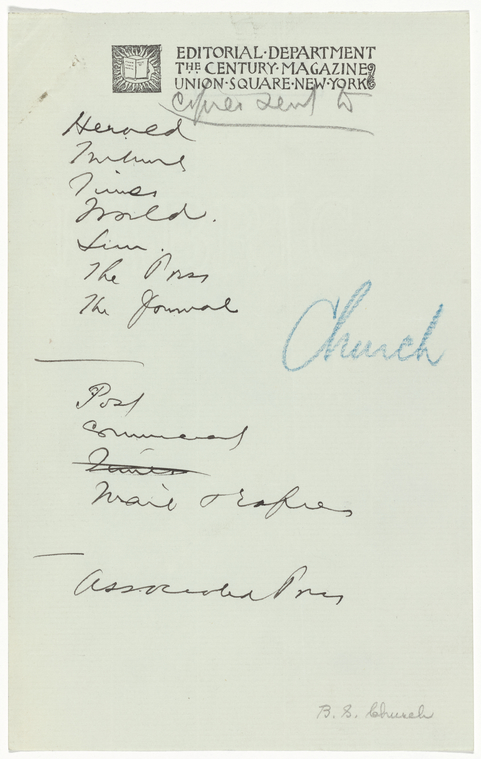 EDITORIAL·DEPARTMENT
THE CENTURY·MAGAZINE
UNION·SQUARE·NEW·YORK
copies sent to
Herald
Tribune
Times
World.
Sun.
The Press
The Journal
Church
Post
Commercial
Times
Mail & Express
Associated Press
B. S. Church